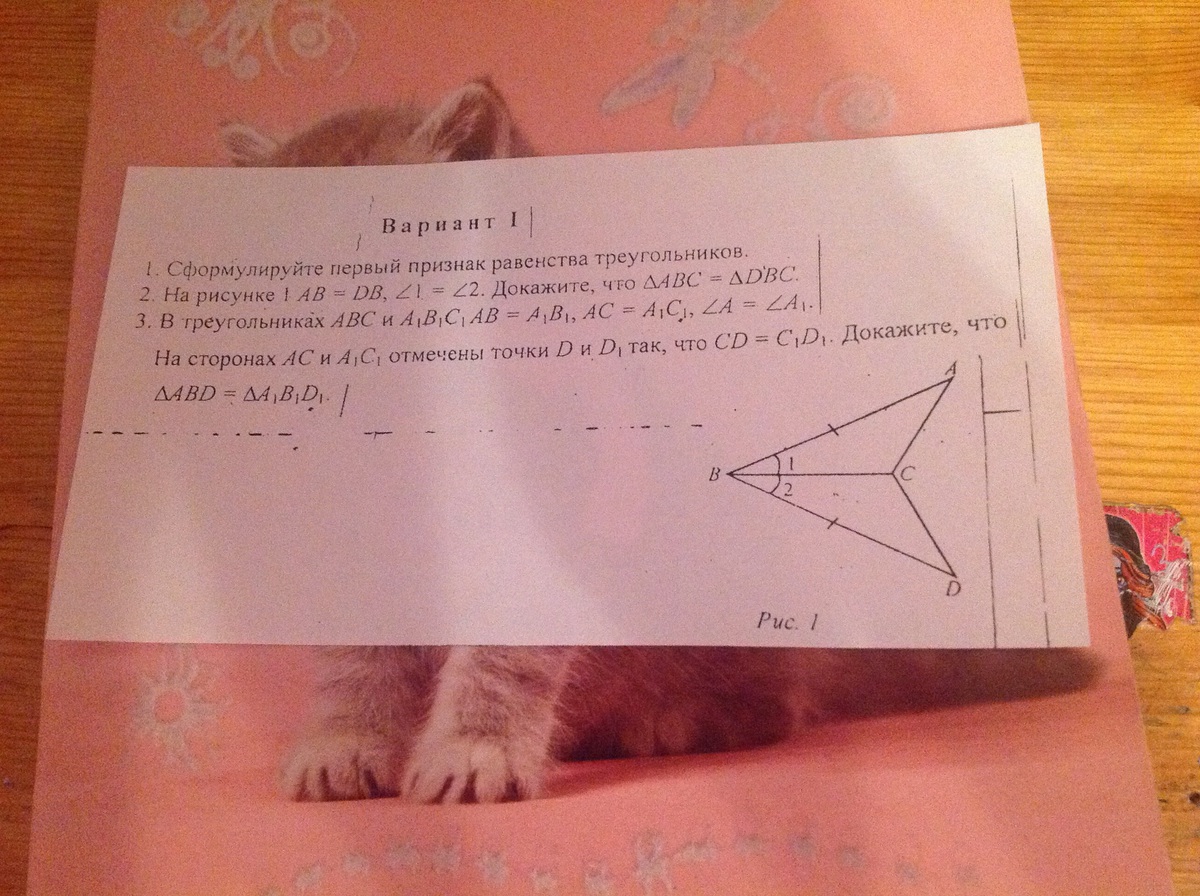 Вариант I
1. Сформулируйте первый признак равенства треугольников.
2. На рисунке 1 AB = DB, ∠1 = ∠2. Докажите, что ΔABC = ΔDBC.
3. В треугольниках ABC и A₁B₁C₁ AB = A₁B₁, AC = A₁C₁, ∠A = ∠A₁.
На сторонах AC и A₁C₁ отмечены точки D и D₁ так, что CD = C₁D₁. Докажите, что
ΔABD = ΔA₁B₁D₁.
A
B 1 C
2
D
Рис. 1